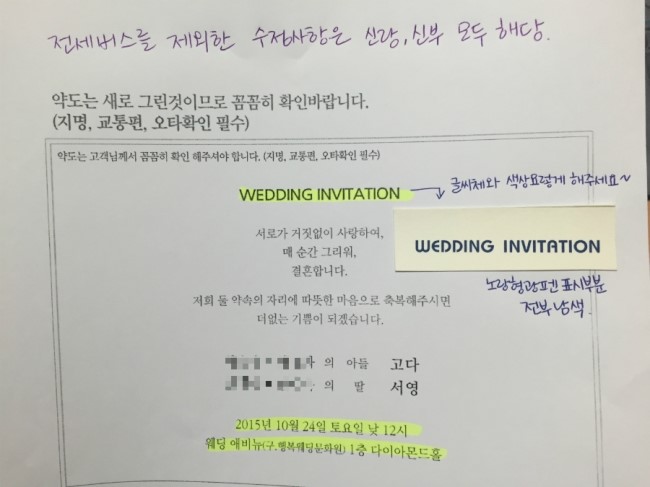 전세버스를 제외한 수정사항은 신랑, 신부 모두 해당.
약도는 새로 그린것이므로 꼼꼼히 확인바랍니다.
(지명, 교통편, 오타확인 필수)
약도는 고객님께서 꼼꼼히 확인 해주셔야 합니다. (지명, 교통편, 오타확인 필수)
WEDDING INVITATION
글씨체와 색상요렇게 해주세요~
WEDDING INVITATION
노랑형광펜 표시부분
전부 남색.
서로가 거짓없이 사랑하여,
매 순간 그리워,
결혼합니다.
저희 둘 약속의 자리에 따뜻한 마음으로 축복해주시면
더없는 기쁨이 되겠습니다.
의 아들 고다
의 딸 서영
2015년 10월 24일 토요일 낮 12시
웨딩 애비뉴(구.행복웨딩문화원) 1층 다이아몬드홀